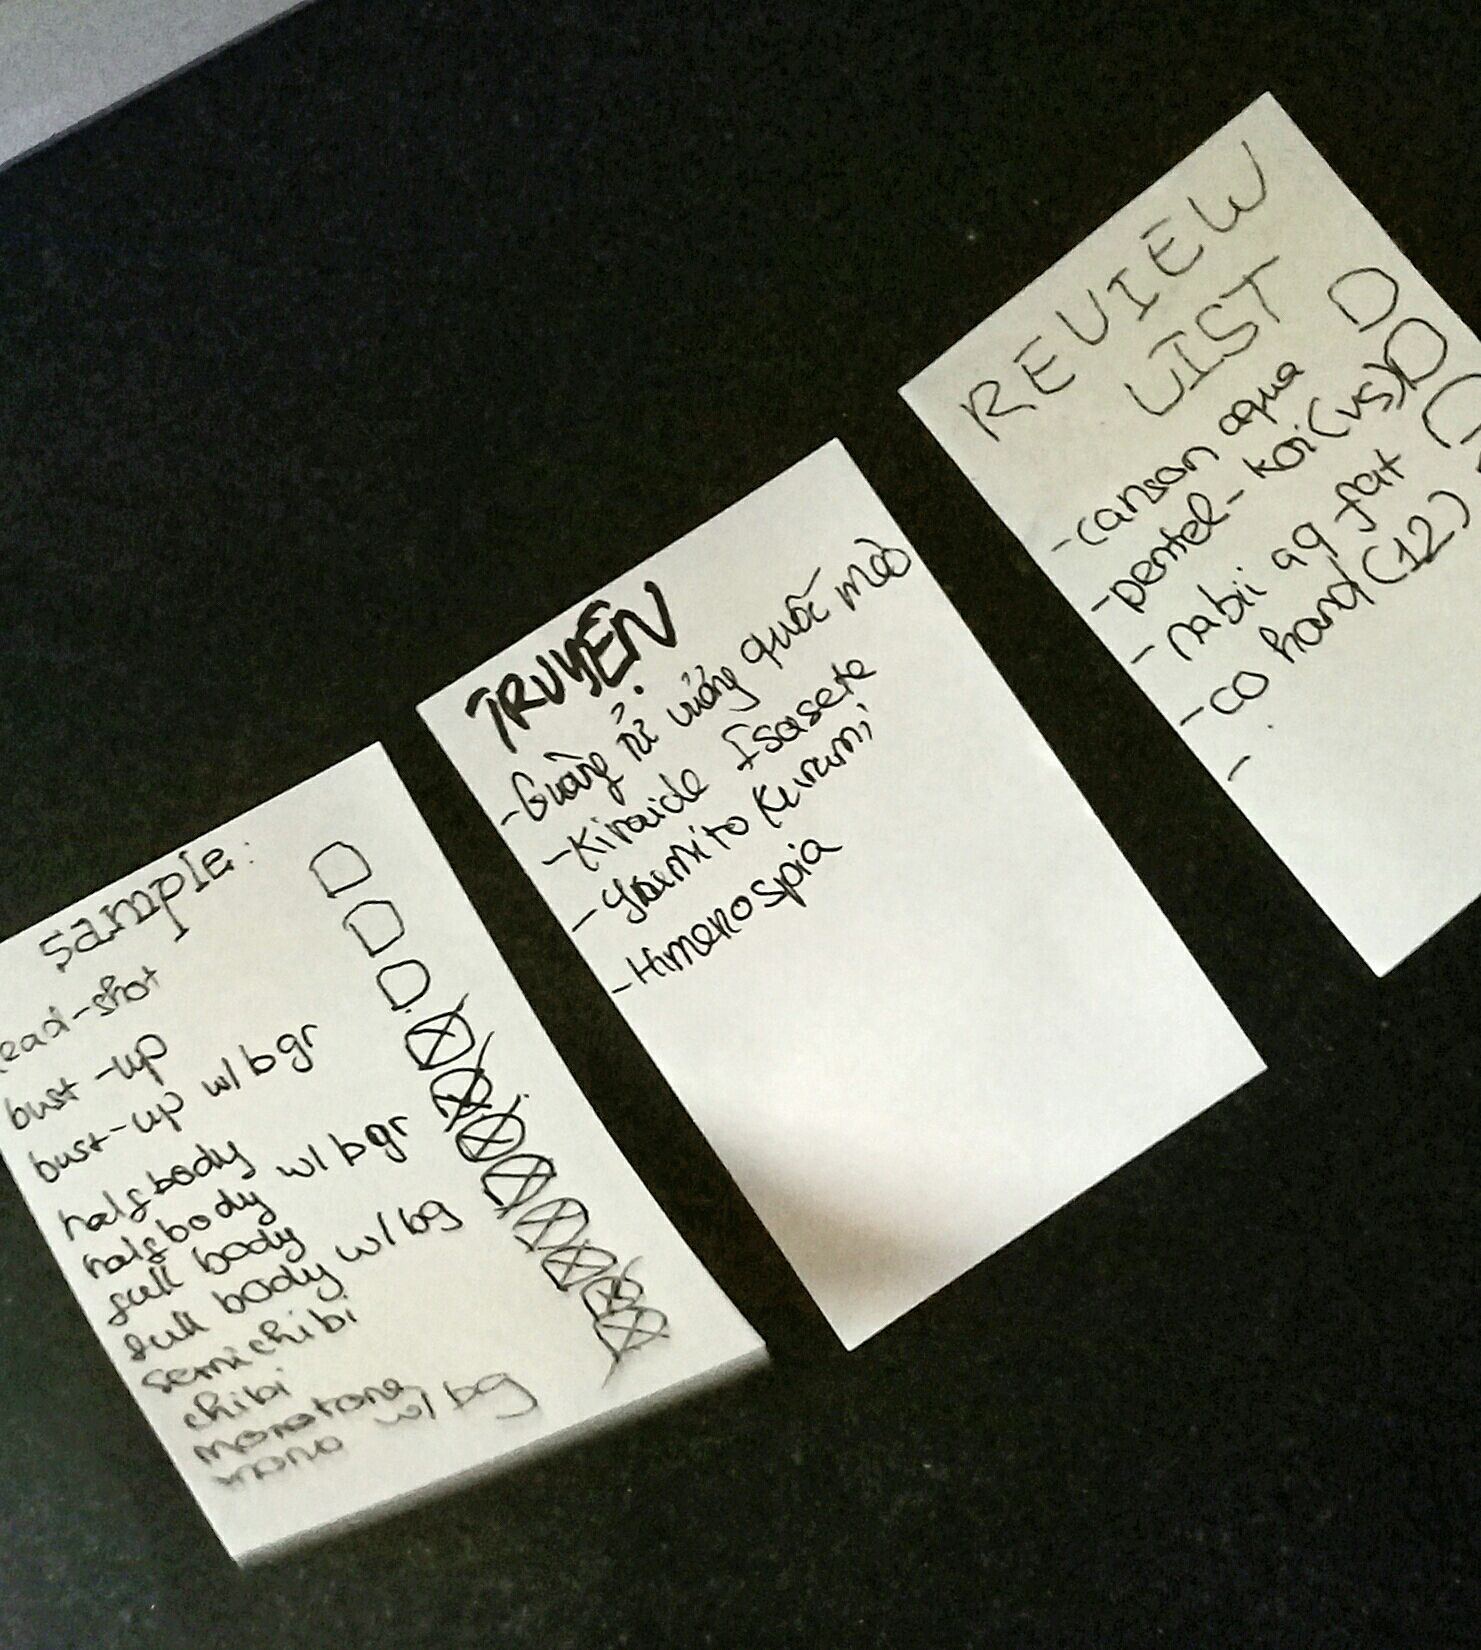 sample:
ead-shot
bust-up
bust-up w/ bgr
halfbody
halfbody w/ bgr
full body
full body w/ bg
semichibi
chibi
monotone
mono w/ bg
TRUYỆN
- Guồng từ vương quốc
- Kiraide Isasete
- Kurumi
- Himenospia
REVIEW
LIST
- canson aqua
- pentel - koi (vs)
- nabii aq fat
- co hand (12)
-